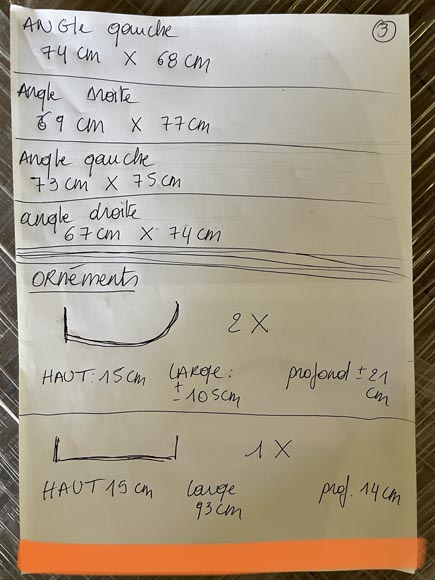 3
ANGle gauche
74 cm X 68 cm
Angle droite
69 cm X 77 cm
Angle gauche
73 cm X 75 cm
angle droite
67 cm X 74 cm
ORNÉMENTS
2 X
HAUT: 15 cm LARGE: ± 105 cm profond ± 21 cm
1 X
HAUT 15 cm large 93 cm prof. 14 cm